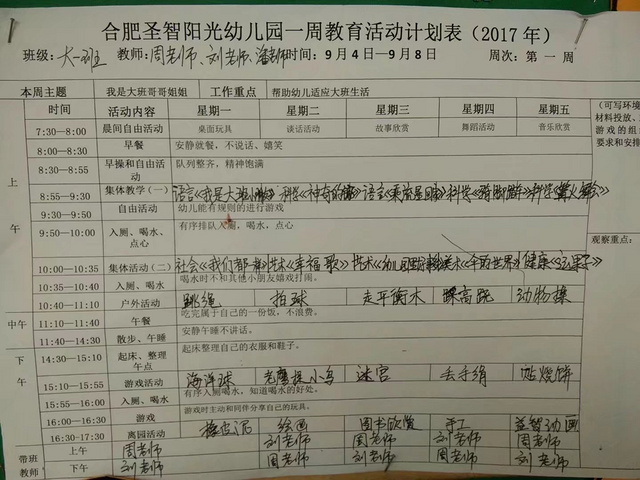 合肥圣智阳光幼儿园一周教育活动计划表（2017年）
班级：大一班 教师：周老师、刘老师、潘老师 时间：9月4日—9月8日 周次：第一周
本周主题 我是大班哥哥姐姐 工作重点 帮助幼儿适应大班生活
时间 活动内容 星期一 星期二 星期三 星期四 星期五
（可写环境
材料投放、
游戏的组
要求和安排
上午
7:30—8:00 晨间自由活动 桌面玩具 谈话活动 故事欣赏 舞蹈活动 音乐欣赏
8:00—8:30 早餐 安静就餐，不说话、嬉笑
8:30—8:55 早操和自由活动 队列整齐，精神饱满
8:55—9:30 集体教学（一） 语言《我是大班 科学《神奇的 语言 科学 科学
9:30—9:50 自由活动 幼儿能有规则的进行游戏
9:50—10:00 入厕、喝水、点心 有序排队入厕，喝水，点心
观察重点：
10:00—10:35 集体活动（二） 社会《我们都 艺术《幸福歌》 艺术《幼儿园 健康
10:35—10:40 入厕、喝水 喝水时不和其他小朋友嬉戏打闹。
10:40—11:10 户外活动 跳绳 拍球 走平衡木 踩高跷 动物操
中午
11:10—11:40 午餐 吃完属于自己的一份饭，不浪费。
11:40—14:30 散步、午睡 安静午睡不讲话。
下午
14:30—15:10 起床、整理午点 起床整理自己的衣服和鞋子。
15:10—15:55 游戏活动 海洋球 老鹰捉小鸟 迷宫 丢手绢 贴烧饼
15:55—16:00 入厕、喝水 有序入厕喝水，知道喝水的好处。
16:00—16:30 游戏 游戏时主动和同伴分享自己的玩具。
16:30-17:30 离园活动 橡皮泥 绘画 图书欣赏 手工 益智动画
带班教师 上午 周老师 刘老师 周老师 刘老师 周老师
下午 刘老师 周老师 刘老师 周老师 刘老师